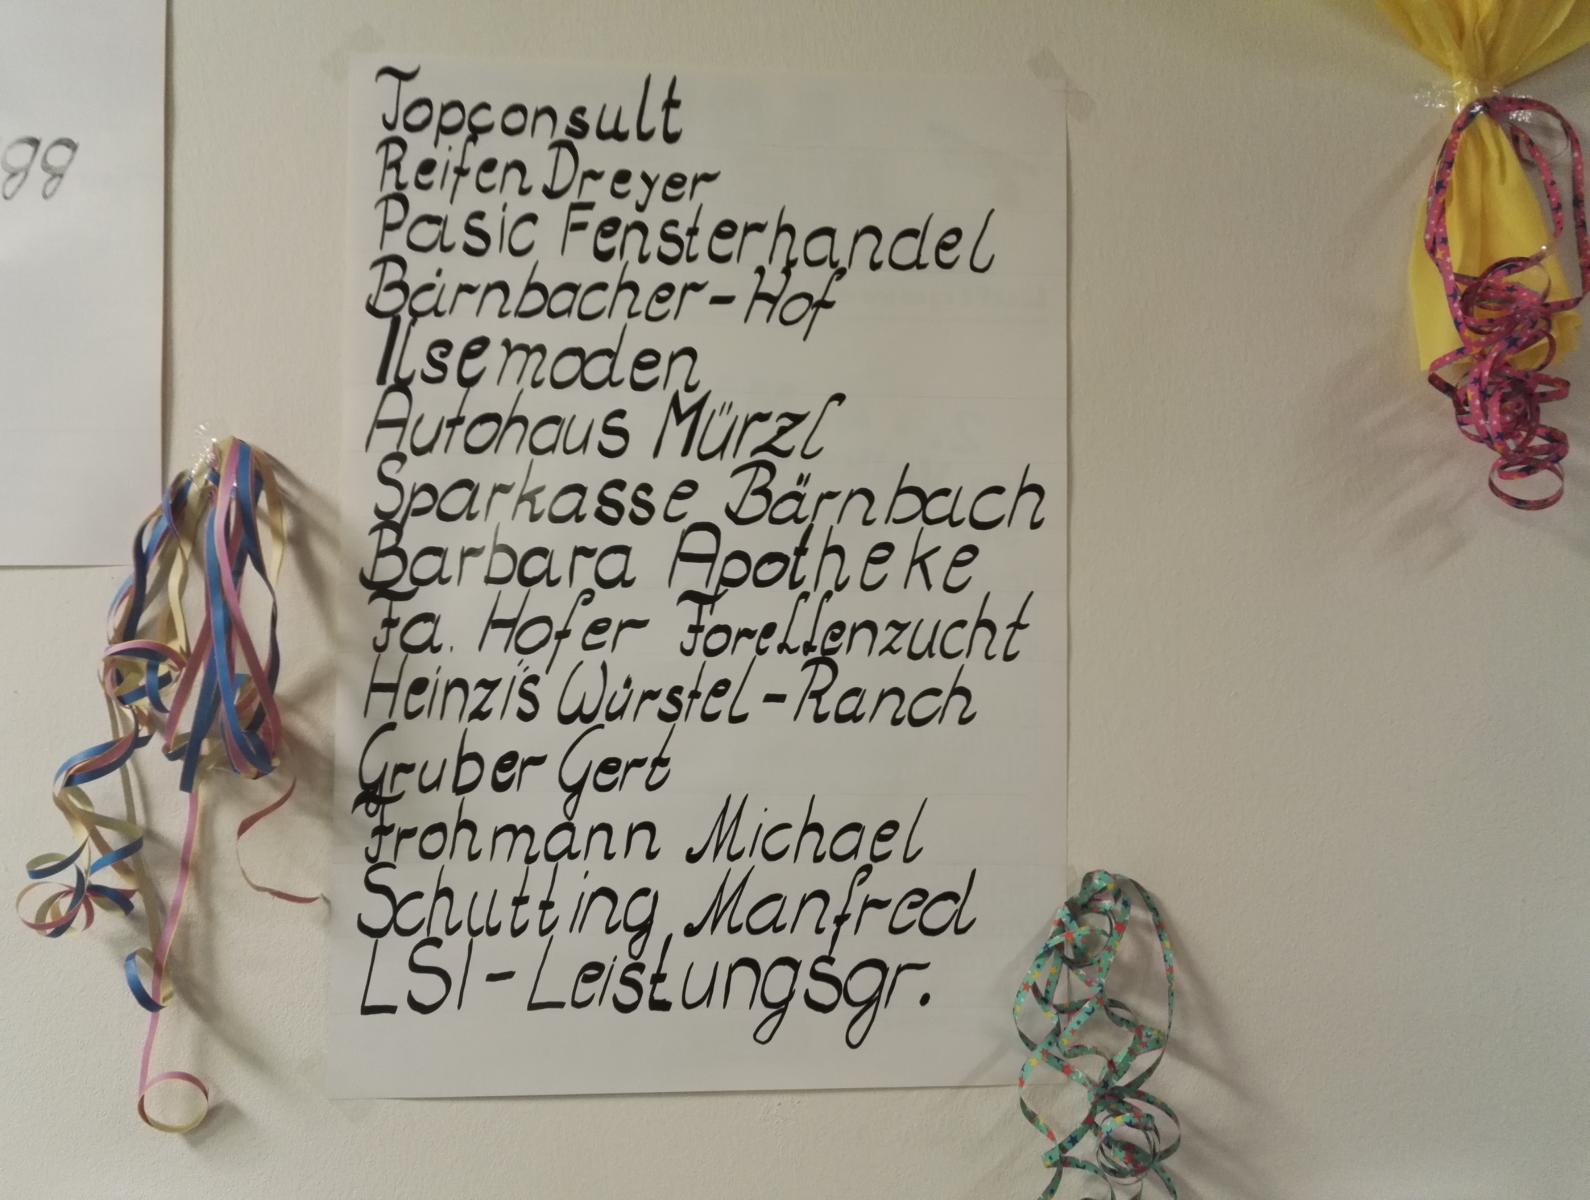 gg
Topconsult
Reifen Dreyer
Pasic Fensterhandel
Bärnbacher-Hof
Ilsemoden
Autohaus Mürzl
Sparkasse Bärnbach
Barbara Apotheke
Fa. Hofer Forellenzucht
Heinzi's Würstel-Ranch
Gruber Gert
Frohmann Michael
Schutting Manfred
LSI-Leistungsgr.